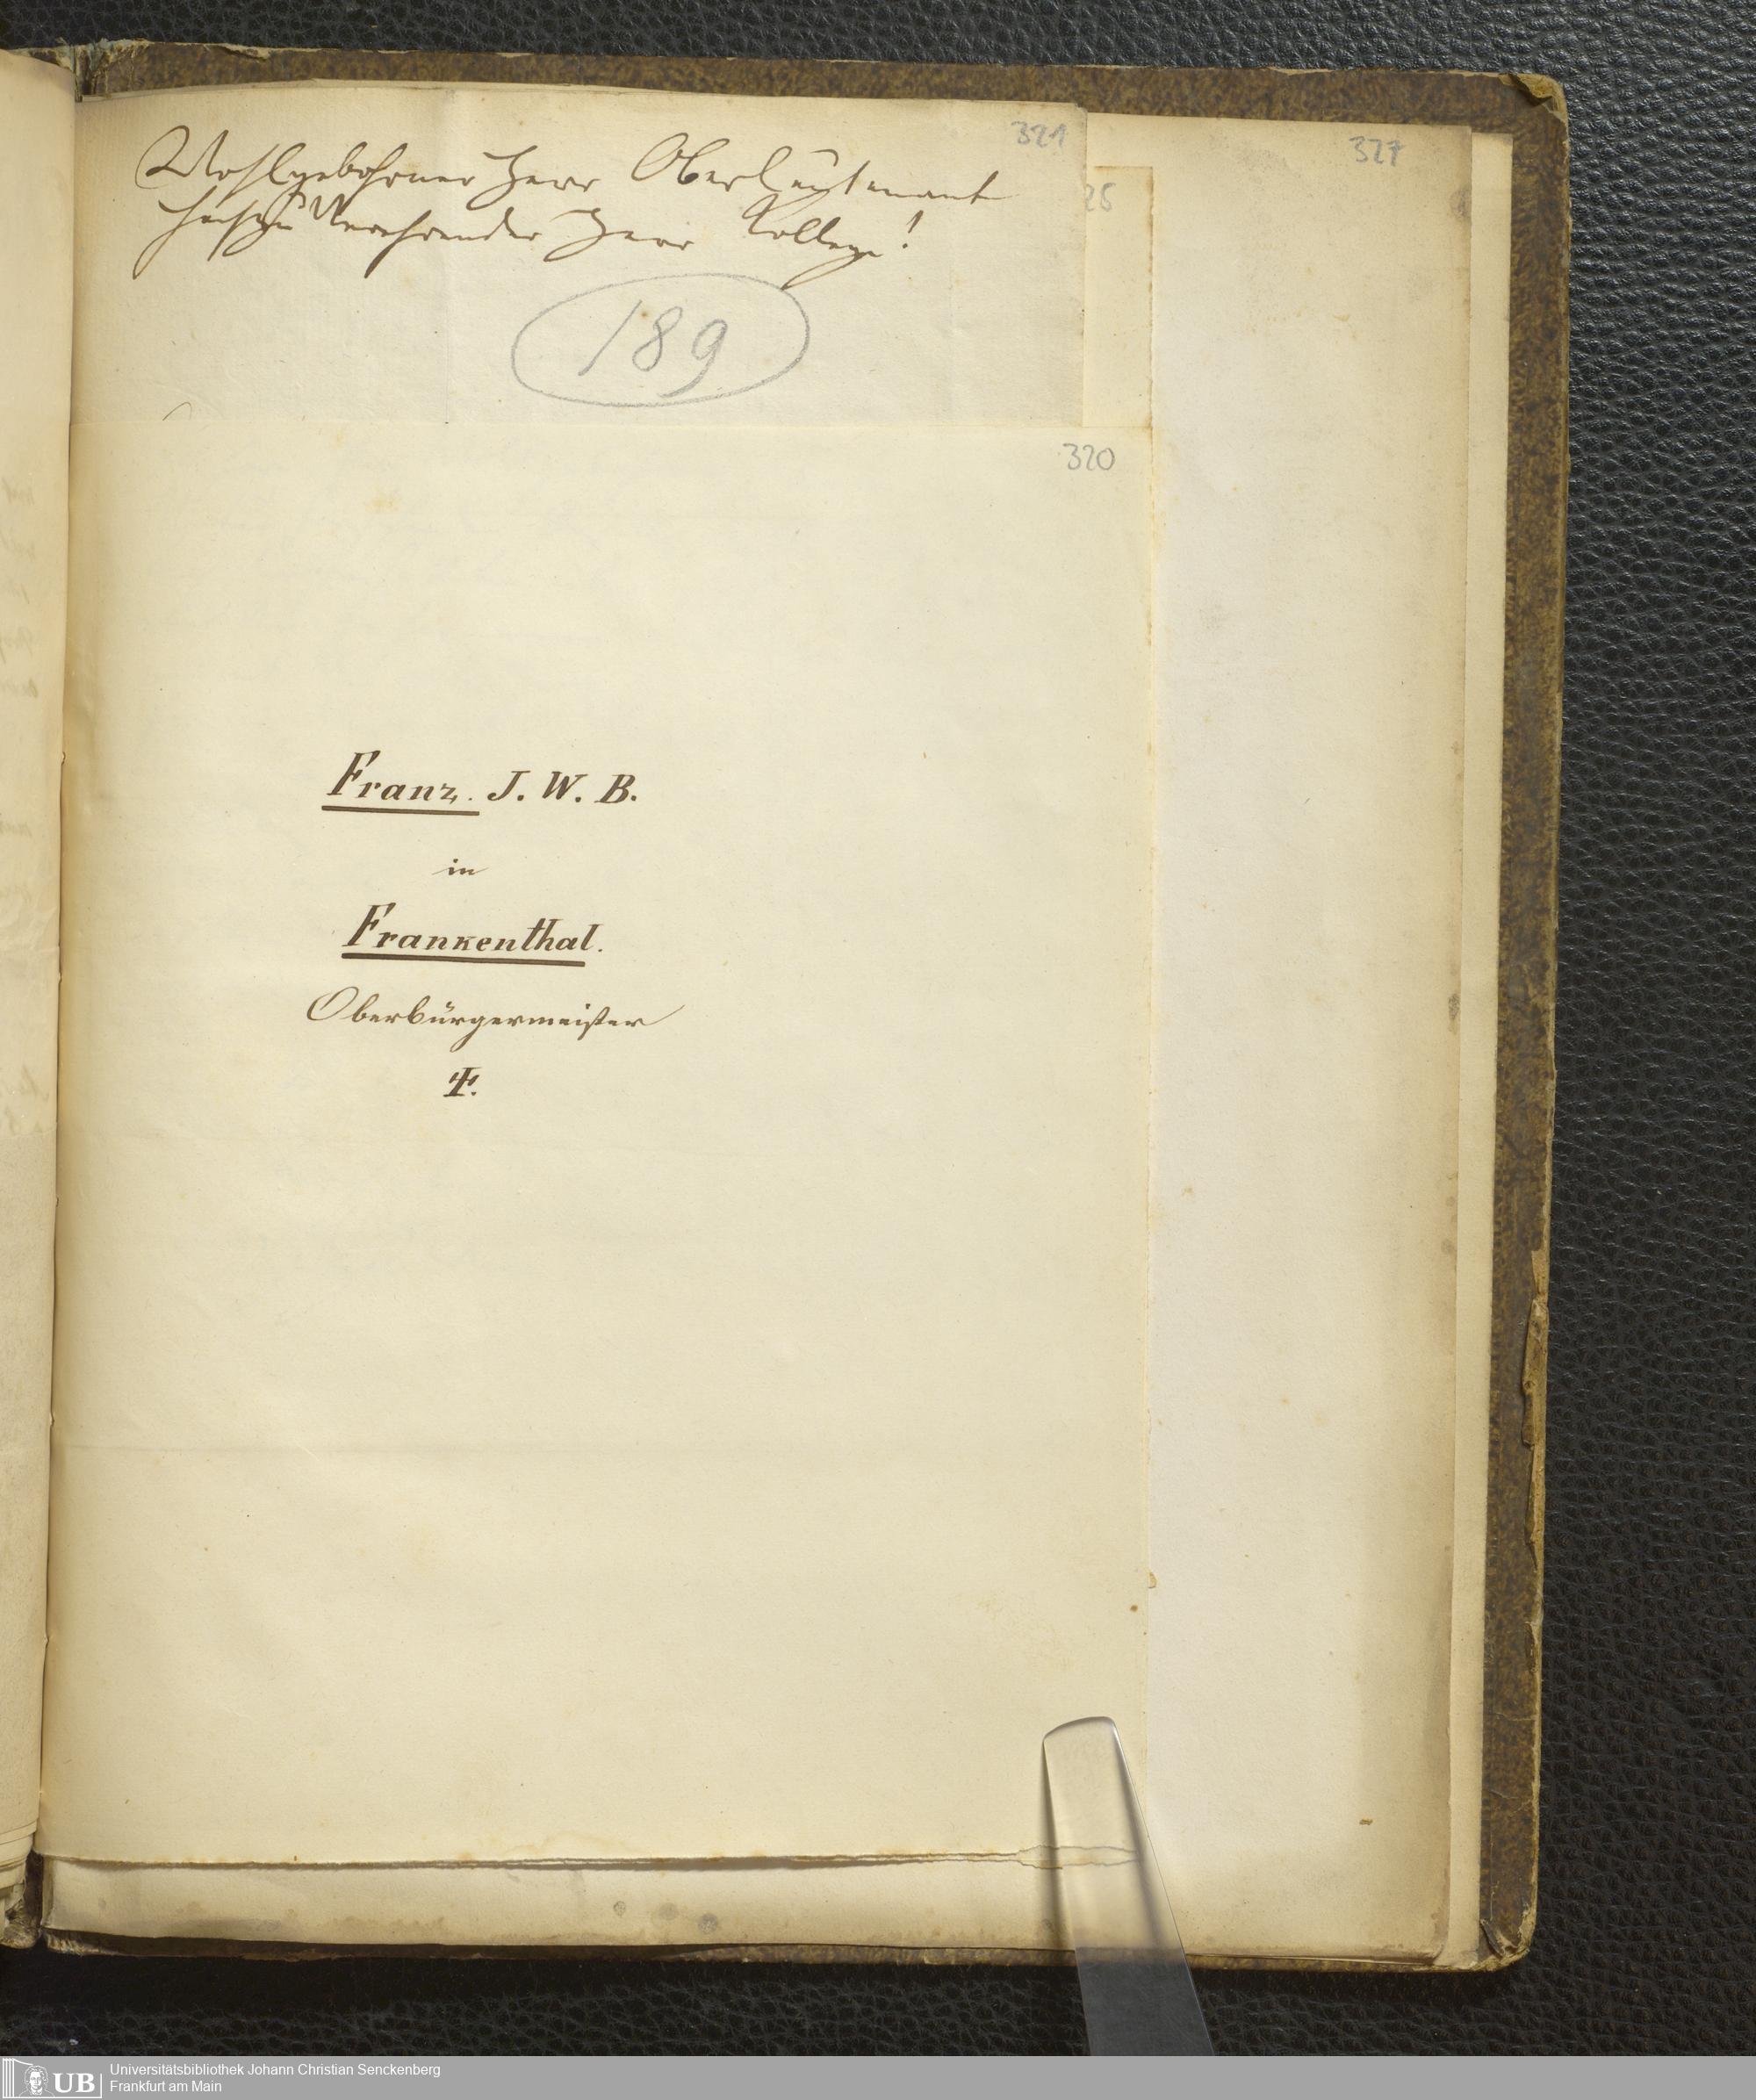 321
327
Wohlgebohrner Herr Oberleutenant
hochzuverehrender Herr Kollege!
25
189
320
Franz. J. W. B.
in
Frankenthal.
Oberbürgermeister
UB
Universitätsbibliothek Johann Christian Senckenberg
Frankfurt am Main